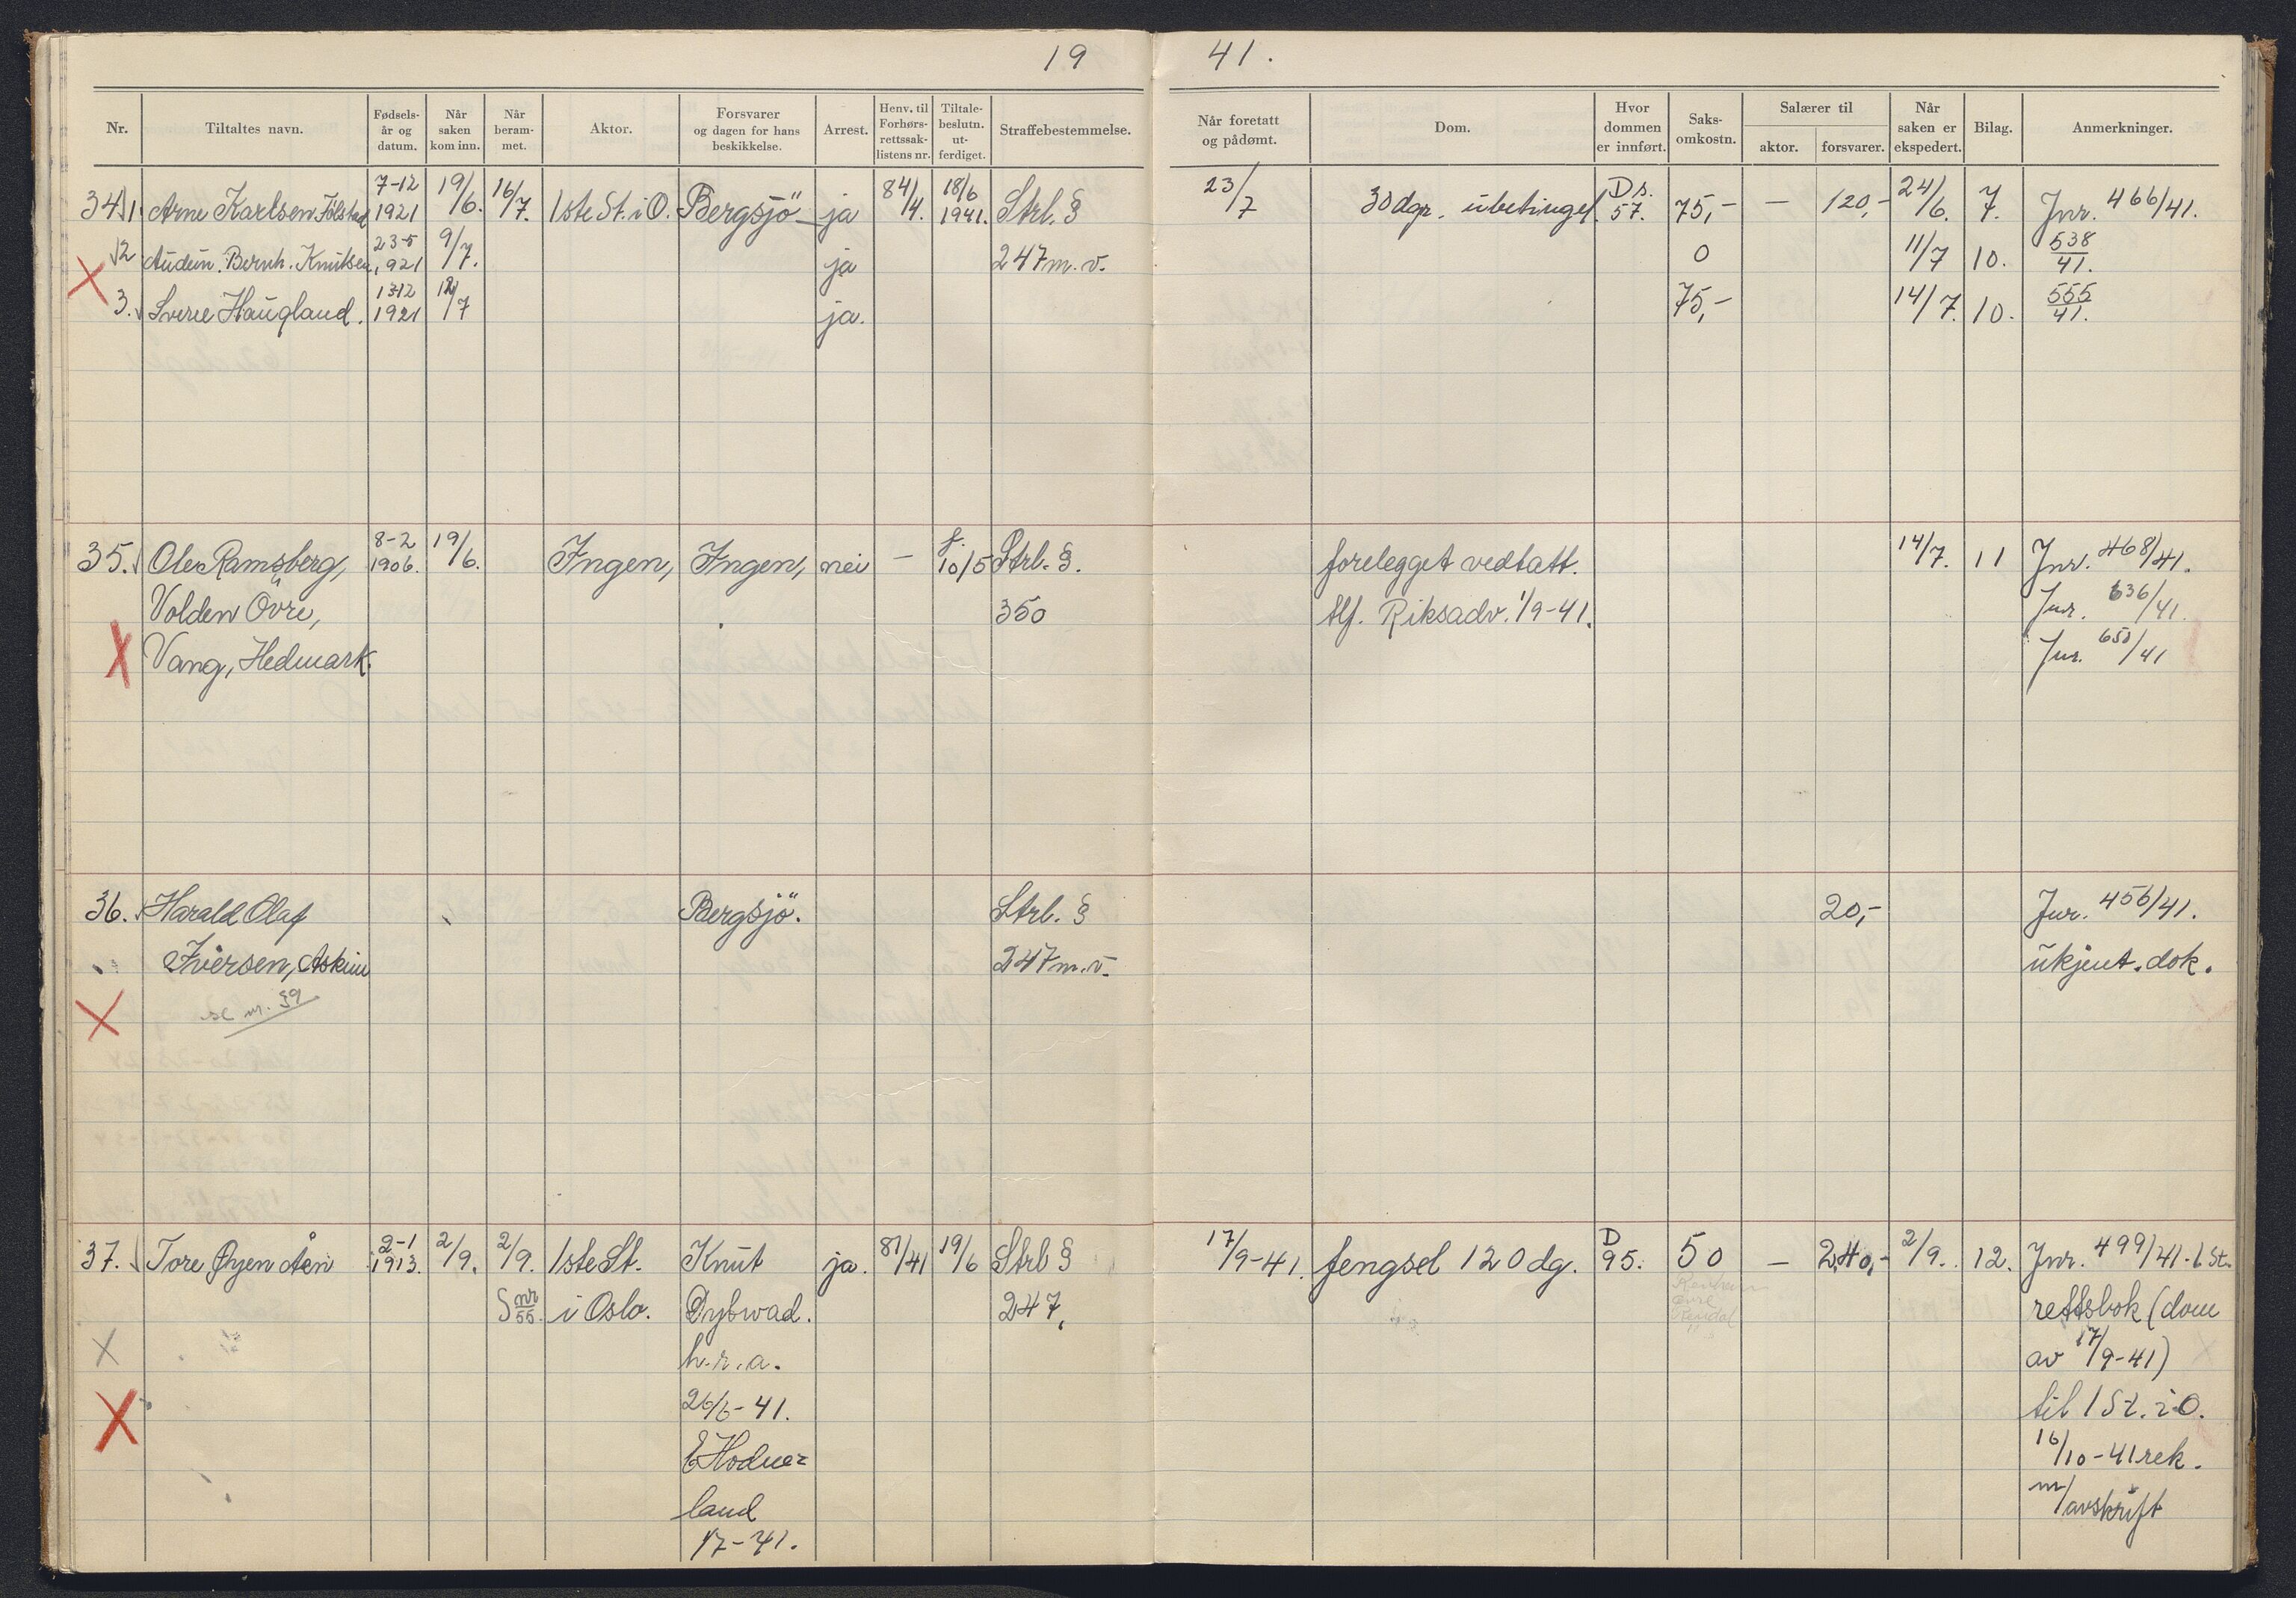 19 41.
Nr. Tiltaltes navn. Fødsels- år og datum. Når saken kom inn. Når beram- met. Aktor. Forsvarer og dagen for hans beskikkelse. Arrest. Henv. til Forhørs- rettssak- listens nr. Tiltale- beslutn. ut- ferdiget. Straffebestemmelse. Når foretatt og pådømt. Dom. Hvor dommen er innført. Saks- omkostn. Salærer til aktor. forsvarer. Når saken er ekspedert. Bilag. Anmerkninger.
34 1 Arne Karlsen Fölstad 7-12 1921 19/6. 16/7. 1ste St. i O. Bergsjö ja 84/4. 18/6 1941. Strl. § 23/7 30 dgr. ubetinget. Ds. 57. 75,- — 120,- 24/6. 7. Jnr. 466/41.
2 Audun. Bernh. Knutsen, 23-5 921 9/7. ja 247 m.v. 0 11/7 10. 538/41.
3. Sverre Haugland. 13-12 1921 12/7 ja. 75,- 14/7. 10. 555/41.
35. Ole Ramsberg, 8-2 1906. 19/6. Ingen, Ingen, nei — f. 10/5 Strb. §. forelegget vedtatt. 14/7. 11 Jnr. 468/41.
Volden Övre, 350 tlf. Riksadv. 1/9-41. Jnr. 636/41.
Vang, Hedmark. Jnr. 650/41
36. Harald Olaf Bergsjö. Strb. § 20,- Jnr. 456/41.
Iversen, Askim 247 m.v. ukjent. dok.
se nr. 39
37. Tore Øyen Åen 2-1 1913. 2/9. 2/9. 1ste St. Knut ja. 81/41 19/6 Strb § 17/9-41. fengsel 120 dg. D 95. 50 — 240,- 2/9. 12. Jnr. 499/41-1 St.
S nr 55. i Oslo. Dybwad. 247, rettsbok (dom
h.r.a. av 17/9-41)
26/6-41. til 1 St. i O.
16/10-41 rek.
land m/avskrift
1/7-41.